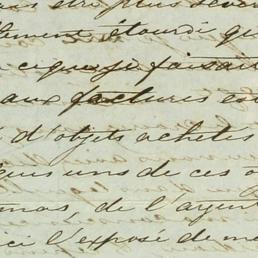 être plus sévère
étourdi qu
ce que je faisais
aux factures en
d'objets achetés
ques uns de ces o
de l'argent
ici l'exposé de me